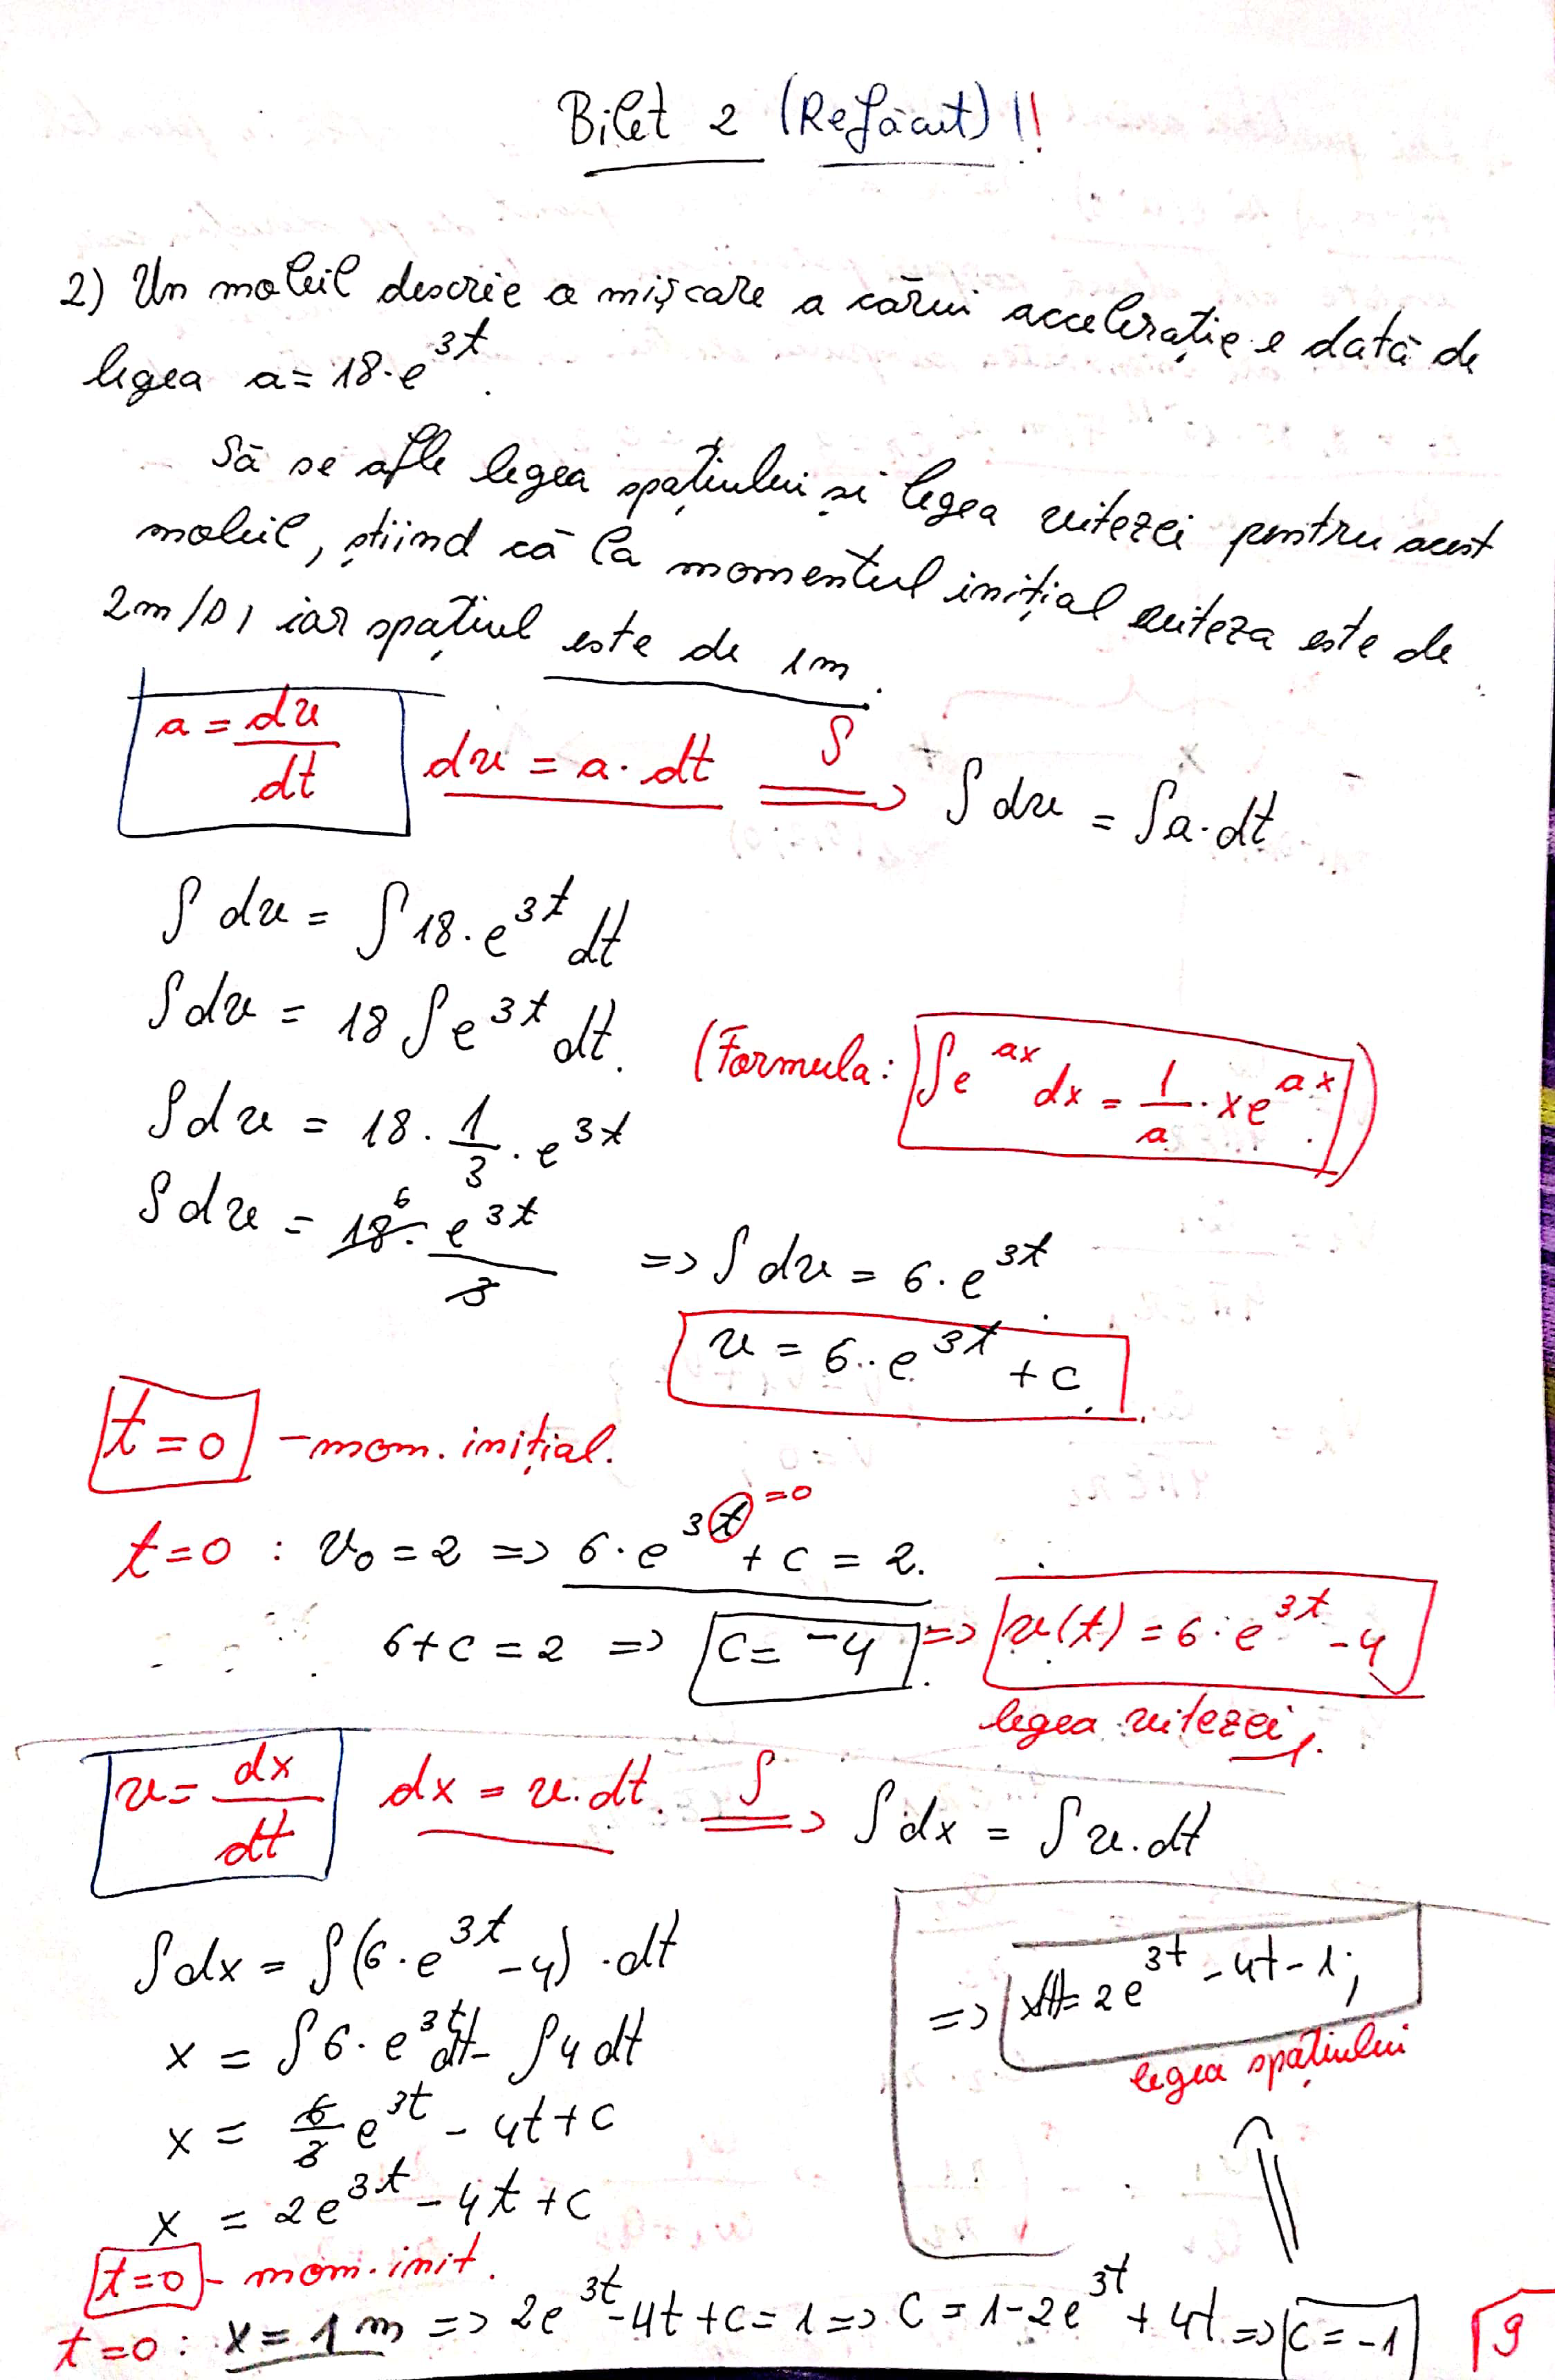 Bilet 2 (Refăcut) !!
2) Un mobil descrie o mișcare a cărui accelerație e dată de
legea a = 18·e^{3t}.
Să se afle legea spațiului și legea vitezei pentru acest
mobil, știind că la momentul inițial viteza este de
2m/s, iar spațiul este de 1m.
a = dv/dt dv = a·dt =∫=> ∫dv = ∫a·dt
∫dv = ∫18·e^{3t} dt
∫dv = 18 ∫e^{3t} dt. (Formula: ∫e^{ax} dx = 1/a · xe^{ax}.)
∫dv = 18 · 1/3 · e^{3t}
∫dv = 18^6 · e^{3t}/3 => ∫dv = 6·e^{3t}.
v = 6·e^{3t} + c.
t=0 – mom. inițial.
t=0 : v₀ = 2 => 6·e^{3t} + c = 2. =0
6+c = 2 => c = -4 => v(t) = 6·e^{3t} - 4
legea vitezei.
v = dx/dt dx = v·dt. =∫=> ∫dx = ∫v·dt
∫dx = ∫(6·e^{3t} - 4)·dt
x = ∫6·e^{3t} dt - ∫4 dt
x = 6/3 e^{3t} - 4t + c
x = 2e^{3t} - 4t + c
t=0 – mom. init.
t=0 : x = 1 m => 2e^{3t} - 4t + c = 1 => c = 1 - 2e^{3t} + 4t => c = -1
=> x(t) = 2e^{3t} - 4t - 1;
legea spațiului
9